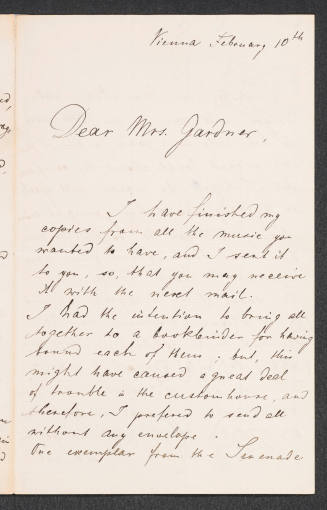 Vienna February 10th
Dear Mrs. Gardner,
I have finished my
copies from all the music you
wanted to have, and I sent it
to you, so, that you may receive
it with the next mail.
I had the intention to bring all
together to a bookbinder for having
bound each of them; but, this
might have caused a great deal
of trouble in the customhouse, and
therefore, I prefered to send all
without any envelope.
One exemplar from the Serenade